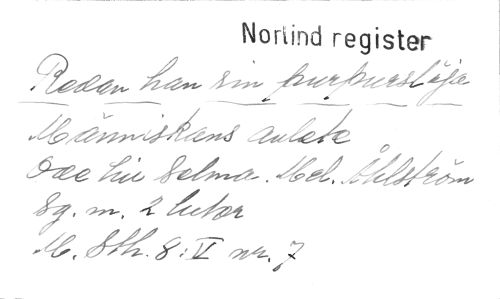 Norlind register
Redan han sin purpurslöja
Människans anlete
Ode till Selma. Mel. Åhlström
Sg. m. 2 lutor
M. Sth. 8:V nr. 7